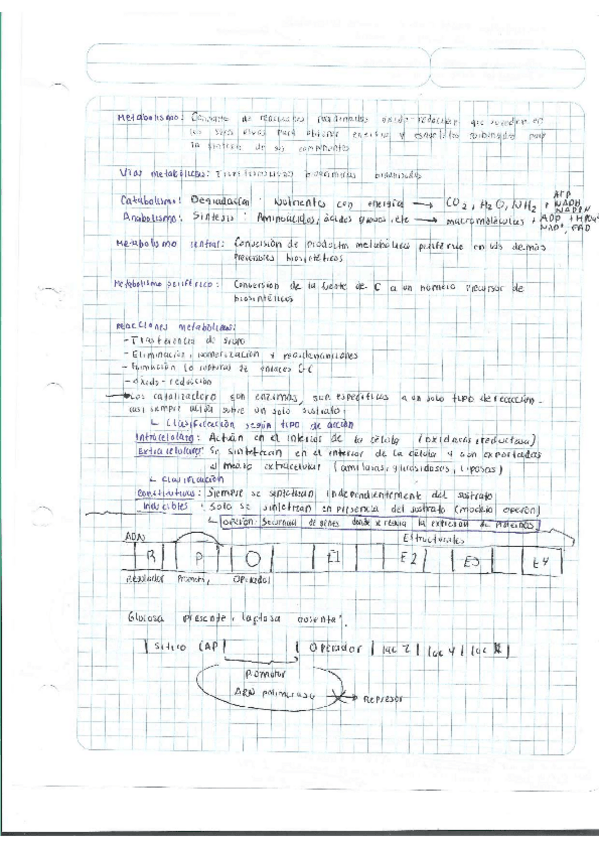 Metabolismo: Conjunto de reacciones óxido-reducción que suceden en
los seres vivos para obtener energía y
la síntesis de sus componentes
Vías metabólicas: bioquímicas
Catabolismo: Degradación: Nutrientes con energía → CO2, H2O, NH2 + ATP NADH NADPH
Anabolismo: Síntesis: Aminoácidos, ácidos grasos, etc → macromoléculas + ADP + NAD+, FAD
Metabolismo central: Conversión de productos metabólicos en los demás
precursores biosintéticos
Metabolismo periférico: Conversión de la fuente de C a un número precursor de
biosintéticos
reacciones metabólicas:
- Trasferencia de grupo
- Eliminación, isomerización y
- Formación (o ruptura) de enlaces C-C
- óxido-reducción
→ Los catalizadores son enzimas, son específicas a un solo tipo de reacción
casi siempre sobre un solo sustrato.
↳ Clasificación según tipo de acción
Intracelulares: Actúan en el interior de la célula (oxidasas, reductasa)
Extracelulares: Se sintetizan en el interior de la célula y son exportadas
al medio extracelular (amilasas, glucosidasas, liposas)
↳ Clasificación
Constitutivas: Siempre se sintetizan independientemente del sustrato
Inducibles: Solo se sintetizan en presencia del sustrato (modelo operón)
↳ operón: Secuencia de genes donde se regula la expresión de proteínas
ADN Estructurales
R P O E1 E2 E3 E4
Regulador Promotor Operador
Glucosa presente, lactosa ausente.
| sitio CAP | | Operador | lac Z | lac Y | lac
Promotor
ARN polimerasa Represor